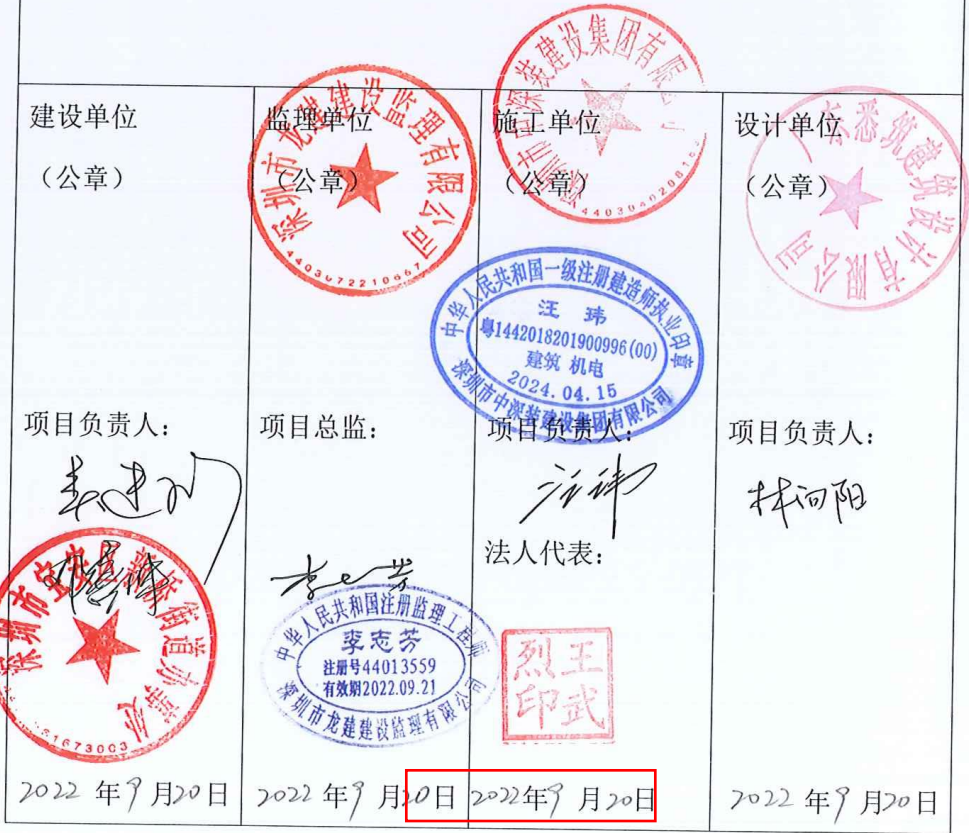 建设单位
（公章）
项目负责人：
深圳市宝安区新桥街道办事处
2022 年 9 月 20 日
监理单位
（公章）
深圳市龙建建设监理有限公司
4403072210667
项目总监：
李志芳
中华人民共和国注册监理工程师
李志芳
注册号44013559
有效期2022.09.21
深圳市龙建建设监理有限公司
2022 年 9 月 20 日
施工单位
（公章）
深圳市中深装建设集团有限
中华人民共和国一级注册建造师执业印章
汪 玮
粤1442018201900996(00)
建筑 机电
2024.04.15
深圳市中深装建设集团有限公司
项目负责人：
汪玮
法人代表：
王武
烈印
2022年 9 月 20日
设计单位
（公章）
悉筑建筑设计有限公司
项目负责人：
林向阳
2022 年 9 月 20 日